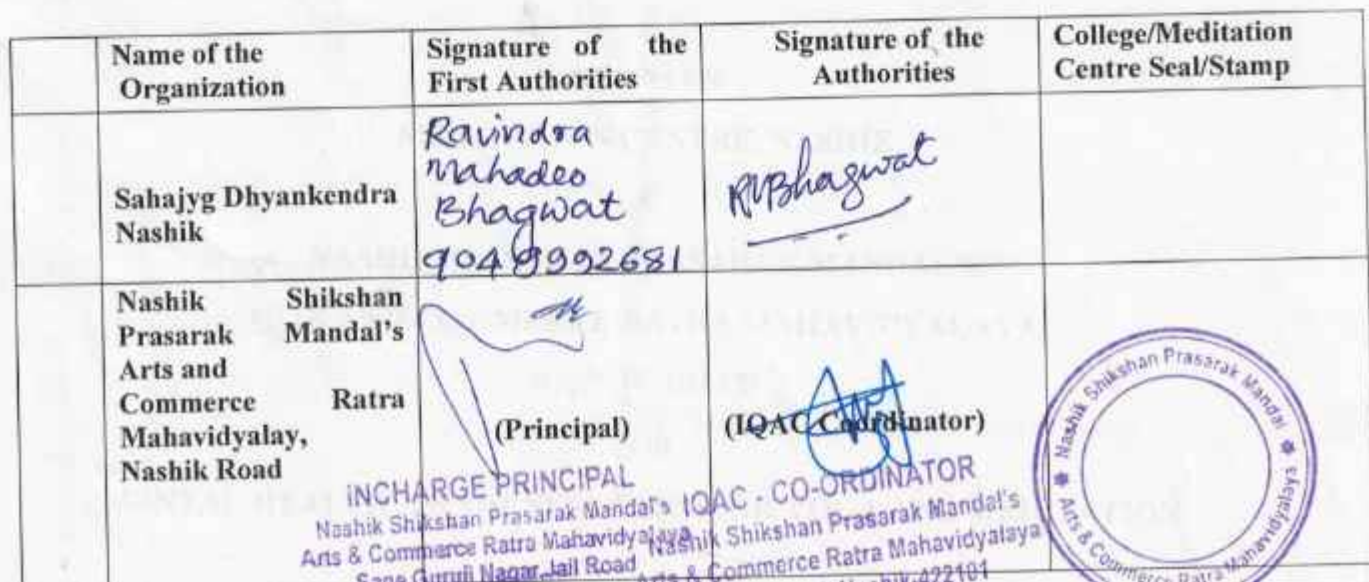 Name of the
Organization
Signature of the
First Authorities
Signature of the
Authorities
College/Meditation
Centre Seal/Stamp
Sahajyg Dhyankendra
Nashik
Ravindra
Mahadeo
Bhagwat
9049992681
RMBhagwat
Nashik Shikshan
Prasarak Mandal's
Arts and
Commerce Ratra
Mahavidyalay,
Nashik Road
(Principal)
INCHARGE PRINCIPAL
Nashik Shikshan Prasarak Mandal's
Arts & Commerce Ratra Mahavidyalaya
Sane Guruji Nagar, Jail Road
(IQAC Coordinator)
IQAC - CO-ORDINATOR
Nashik Shikshan Prasarak Mandal's
Arts & Commerce Ratra Mahavidyalaya
Nashik-422101
Nashik Shikshan Prasarak Mandal
Arts & Commerce Ratra Mahavidyalaya